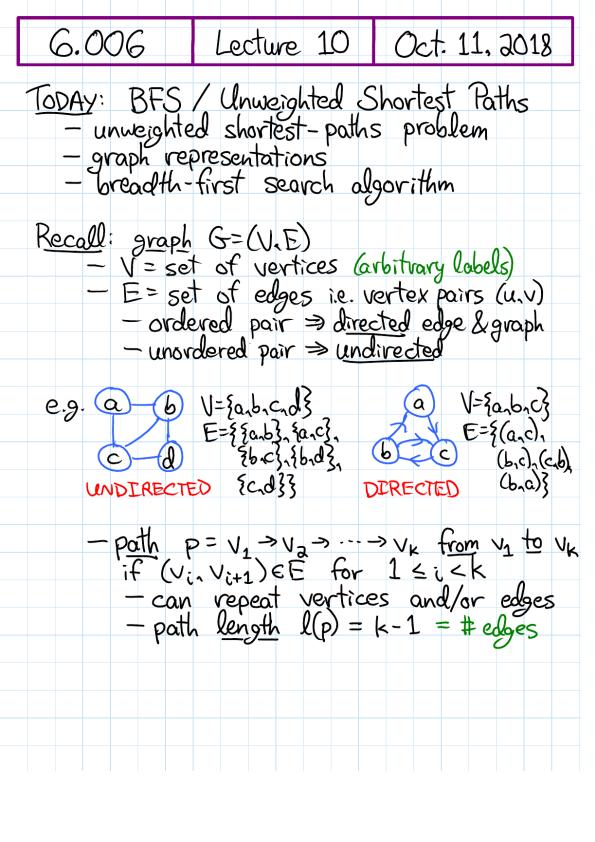 6.006 Lecture 10 Oct. 11, 2018
TODAY: BFS / Unweighted Shortest Paths
– unweighted shortest-paths problem
– graph representations
– breadth-first search algorithm
Recall: graph G=(V,E)
– V = set of vertices (arbitrary labels)
– E = set of edges i.e. vertex pairs (u,v)
– ordered pair ⇒ directed edge & graph
– unordered pair ⇒ undirected
e.g.
a b
c d
UNDIRECTED
V={a,b,c,d}
E={{a,b},{a,c},
{b,c},{b,d},
{c,d}}
a
b c
DIRECTED
V={a,b,c}
E={(a,c),
(b,c),(c,b),
(b,a)}
– path p = v₁ → v₂ → ··· → vₖ from v₁ to vₖ
if (vᵢ, vᵢ₊₁) ∈ E for 1 ≤ i < k
– can repeat vertices and/or edges
– path length l(p) = k-1 = # edges